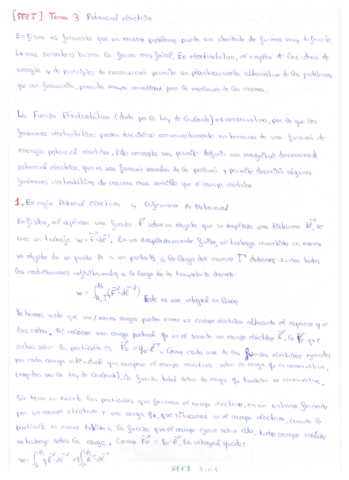 [FFEI] Tema 3 Potencial eléctrico
En física es frecuente que un mismo problema pueda ser abordado de formas muy diferente
Lo mas sensato es buscar la forma mas fácil. En electrostática, el empleo de las ideas de
energía y de principios de conservación permite un planteamiento alternativo de los problemas
que con frecuencia, presenta mayor comodidad para la resolución de los mismos.
La Fuerza Electrostática (dada por la Ley de Coulomb) es conservativa, por lo que los
fenómenos electrostáticos pueden describirse convenientemente en términos de una función de
energía potencial eléctrica. Este concepto nos permite definir una magnitud denominada
potencial eléctrico, que es una función escalar de la posición y permite describir algunos
fenómenos electrostáticos de manera mas sencilla que el campo eléctrico
1. Energía Potencial eléctrica y Diferencia de Potencial
En física, al aplicar una fuerza F sobre un objeto que se desplaza una distancia
con un trabajo w = F·dr. En un desplazamiento finito, el trabajo invertido en mover
un objeto de un punto A a un punto B a lo largo del camino Γ debemos sumar todas
las contribuciones infinitesimales a lo largo de la trayectoria descrita:
Esto es una integral en línea
Ya hemos visto que una/varias cargas pueden crear un campo eléctrico alterando el espacio que
las rodea. Al colocar una carga puntual q₀ en el seno de un campo eléctrico E, la F que
actúa sobre la partícula es Fe = q₀E. Como cada una de las fuerzas eléctricas ejercidas
por cada carga individual que compone el campo eléctrico sobre la carga q₀ es conservativa,
(regidas por la Ley de Coulomb), la fuerza total sobre la carga q₀ también es conservativa.
Sin tener en cuenta las partículas que forman el campo eléctrico, en un sistema formado
por un campo eléctrico y una carga q₀, que situamos en el campo eléctrico, cuando la
partícula se mueve debido a la fuerza que el campo ejerce sobre ella, dicho campo realiza
un trabajo sobre la carga. Como Fe = q₀·E, la integral queda:
FFEI 3.01